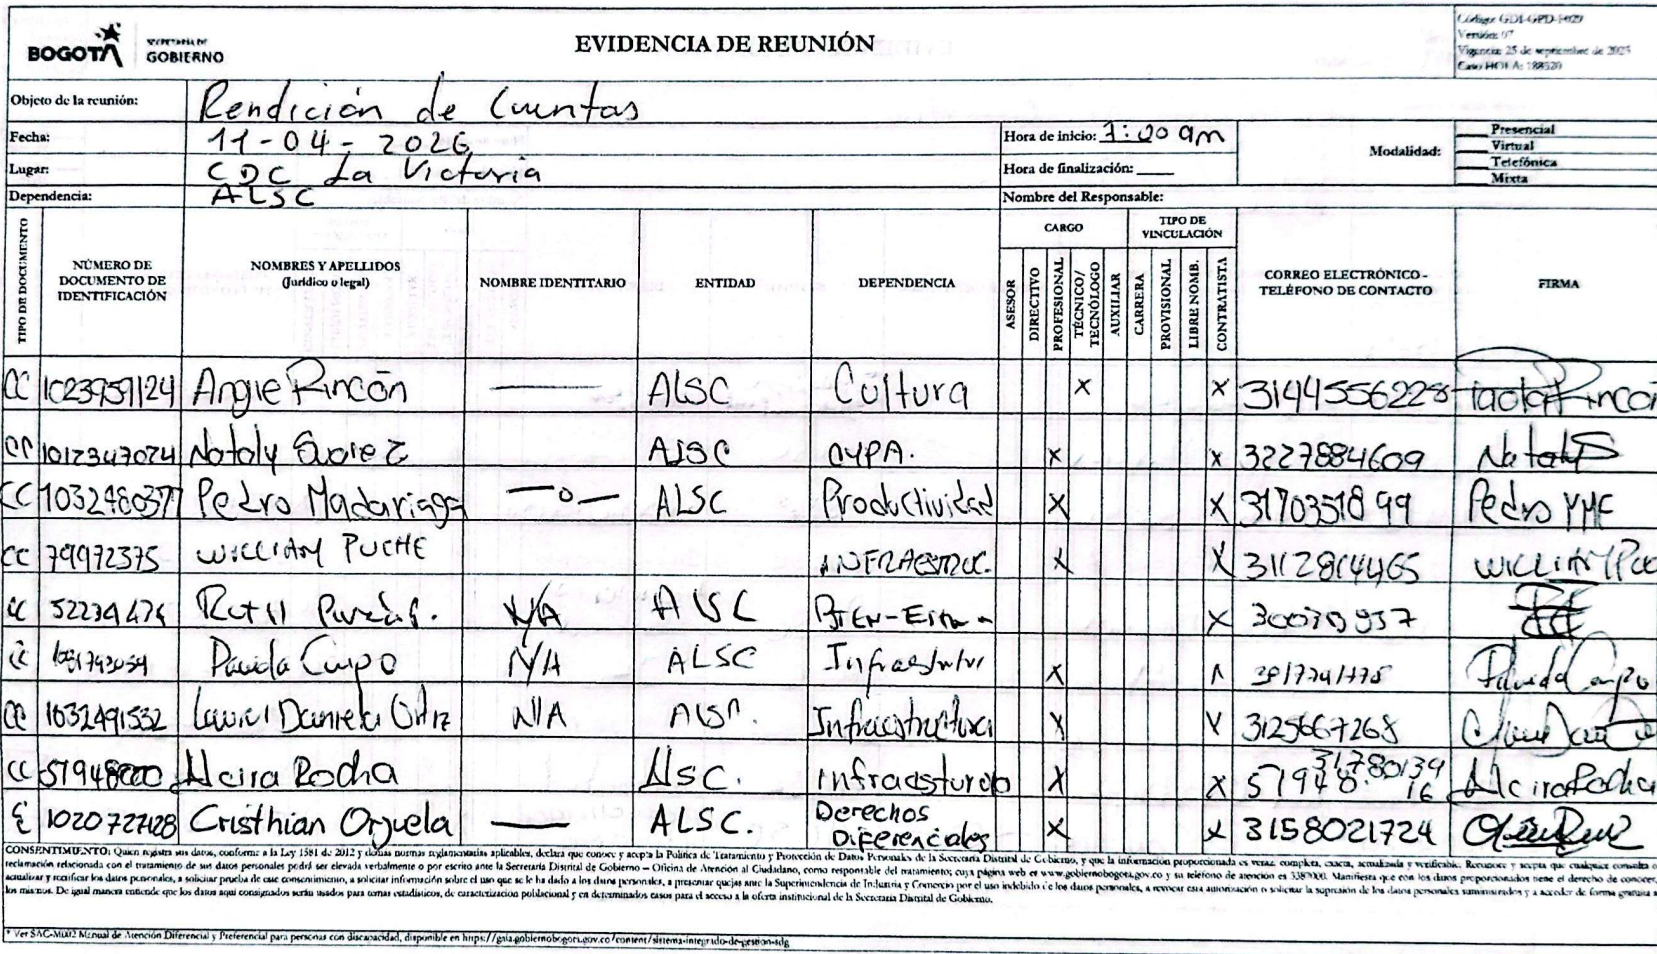 BOGOTÁ
SECRETARÍA DE
GOBIERNO
EVIDENCIA DE REUNIÓN
Código: GDI-GPD-F029
Versión: 07
Vigencia: 25 de septiembre de 2025
Caso HOLA: 188520
Objeto de la reunión: Rendición de Cuentas
Fecha: 11-04-2026
Hora de inicio:
Modalidad:
Presencial
Virtual
Telefónica
Mixta
Lugar: CDC La Victoria
Hora de finalización:
Dependencia: ALSC
Nombre del Responsable:
TIPO DE DOCUMENTO
NÚMERO DE DOCUMENTO DE IDENTIFICACIÓN
NOMBRES Y APELLIDOS
(Jurídico o legal)
NOMBRE IDENTITARIO
ENTIDAD
DEPENDENCIA
CARGO
ASESOR
DIRECTIVO
PROFESIONAL
TÉCNICO/ TECNÓLOGO
AUXILIAR
TIPO DE VINCULACIÓN
CARRERA
PROVISIONAL
LIBRE NOMB.
CONTRATISTA
CORREO ELECTRÓNICO - TELÉFONO DE CONTACTO
FIRMA
CC 1023959124 Angie Rincón — ALSC Cultura x x 3144556228 Rincón
CC 1012347024 Nataly ALSC x x 3227884609 Nataly S
CC 1032480377 Pedro Madariaga —o— ALSC Productividad x x 3170351899 Pedro
CC 79972375 WILLIAM PUCHE INFRAESTRUC. x x 3112814465 WILLIAM
CC N/A ALSC x
N/A ALSC x
CC 1032491532 Daniela Ortiz N/A Infraestructura x x 3125667268
CC Rocha x x Rocha
1020727428 Cristhian Orjuela — ALSC. Derechos Diferenciales x x 3158021724
CONSENTIMIENTO: Quien registra sus datos, conforme a la Ley 1581 de 2012 y demás normas reglamentarias aplicables, declara que conoce y acepta la Política de Tratamiento y Protección de Datos Personales de la Secretaría Distrital de Gobierno, y que la información proporcionada es veraz, completa, exacta, actualizada y verificable. Reconoce y acepta que cualquier consulta o
reclamación relacionada con el tratamiento de sus datos personales podrá ser elevada verbalmente o por escrito ante la Secretaría Distrital de Gobierno – Oficina de Atención al Ciudadano, como responsable del tratamiento; cuya página web es www.gobiernobogota.gov.co y su teléfono de atención es 3387000. Manifiesta que con los datos proporcionados tiene el derecho de conocer,
actualizar y rectificar los datos personales, a solicitar prueba de este consentimiento, a solicitar información sobre el uso que se le ha dado a los datos personales, a presentar quejas ante la Superintendencia de Industria y Comercio por el uso indebido de los datos personales, a revocar esta autorización o solicitar la supresión de los datos personales suministrados y a acceder de forma gratuita a
los mismos. De igual manera entiende que los datos aquí consignados serán usados para temas estadísticos, de caracterización poblacional y en determinados casos para el acceso a la oferta institucional de la Secretaría Distrital de Gobierno.
* Ver SAC-M002 Manual de Atención Diferencial y Preferencial para personas con discapacidad, disponible en https://gaia.gobiernobogota.gov.co/content/sistema-integrado-de-gestion-sdg